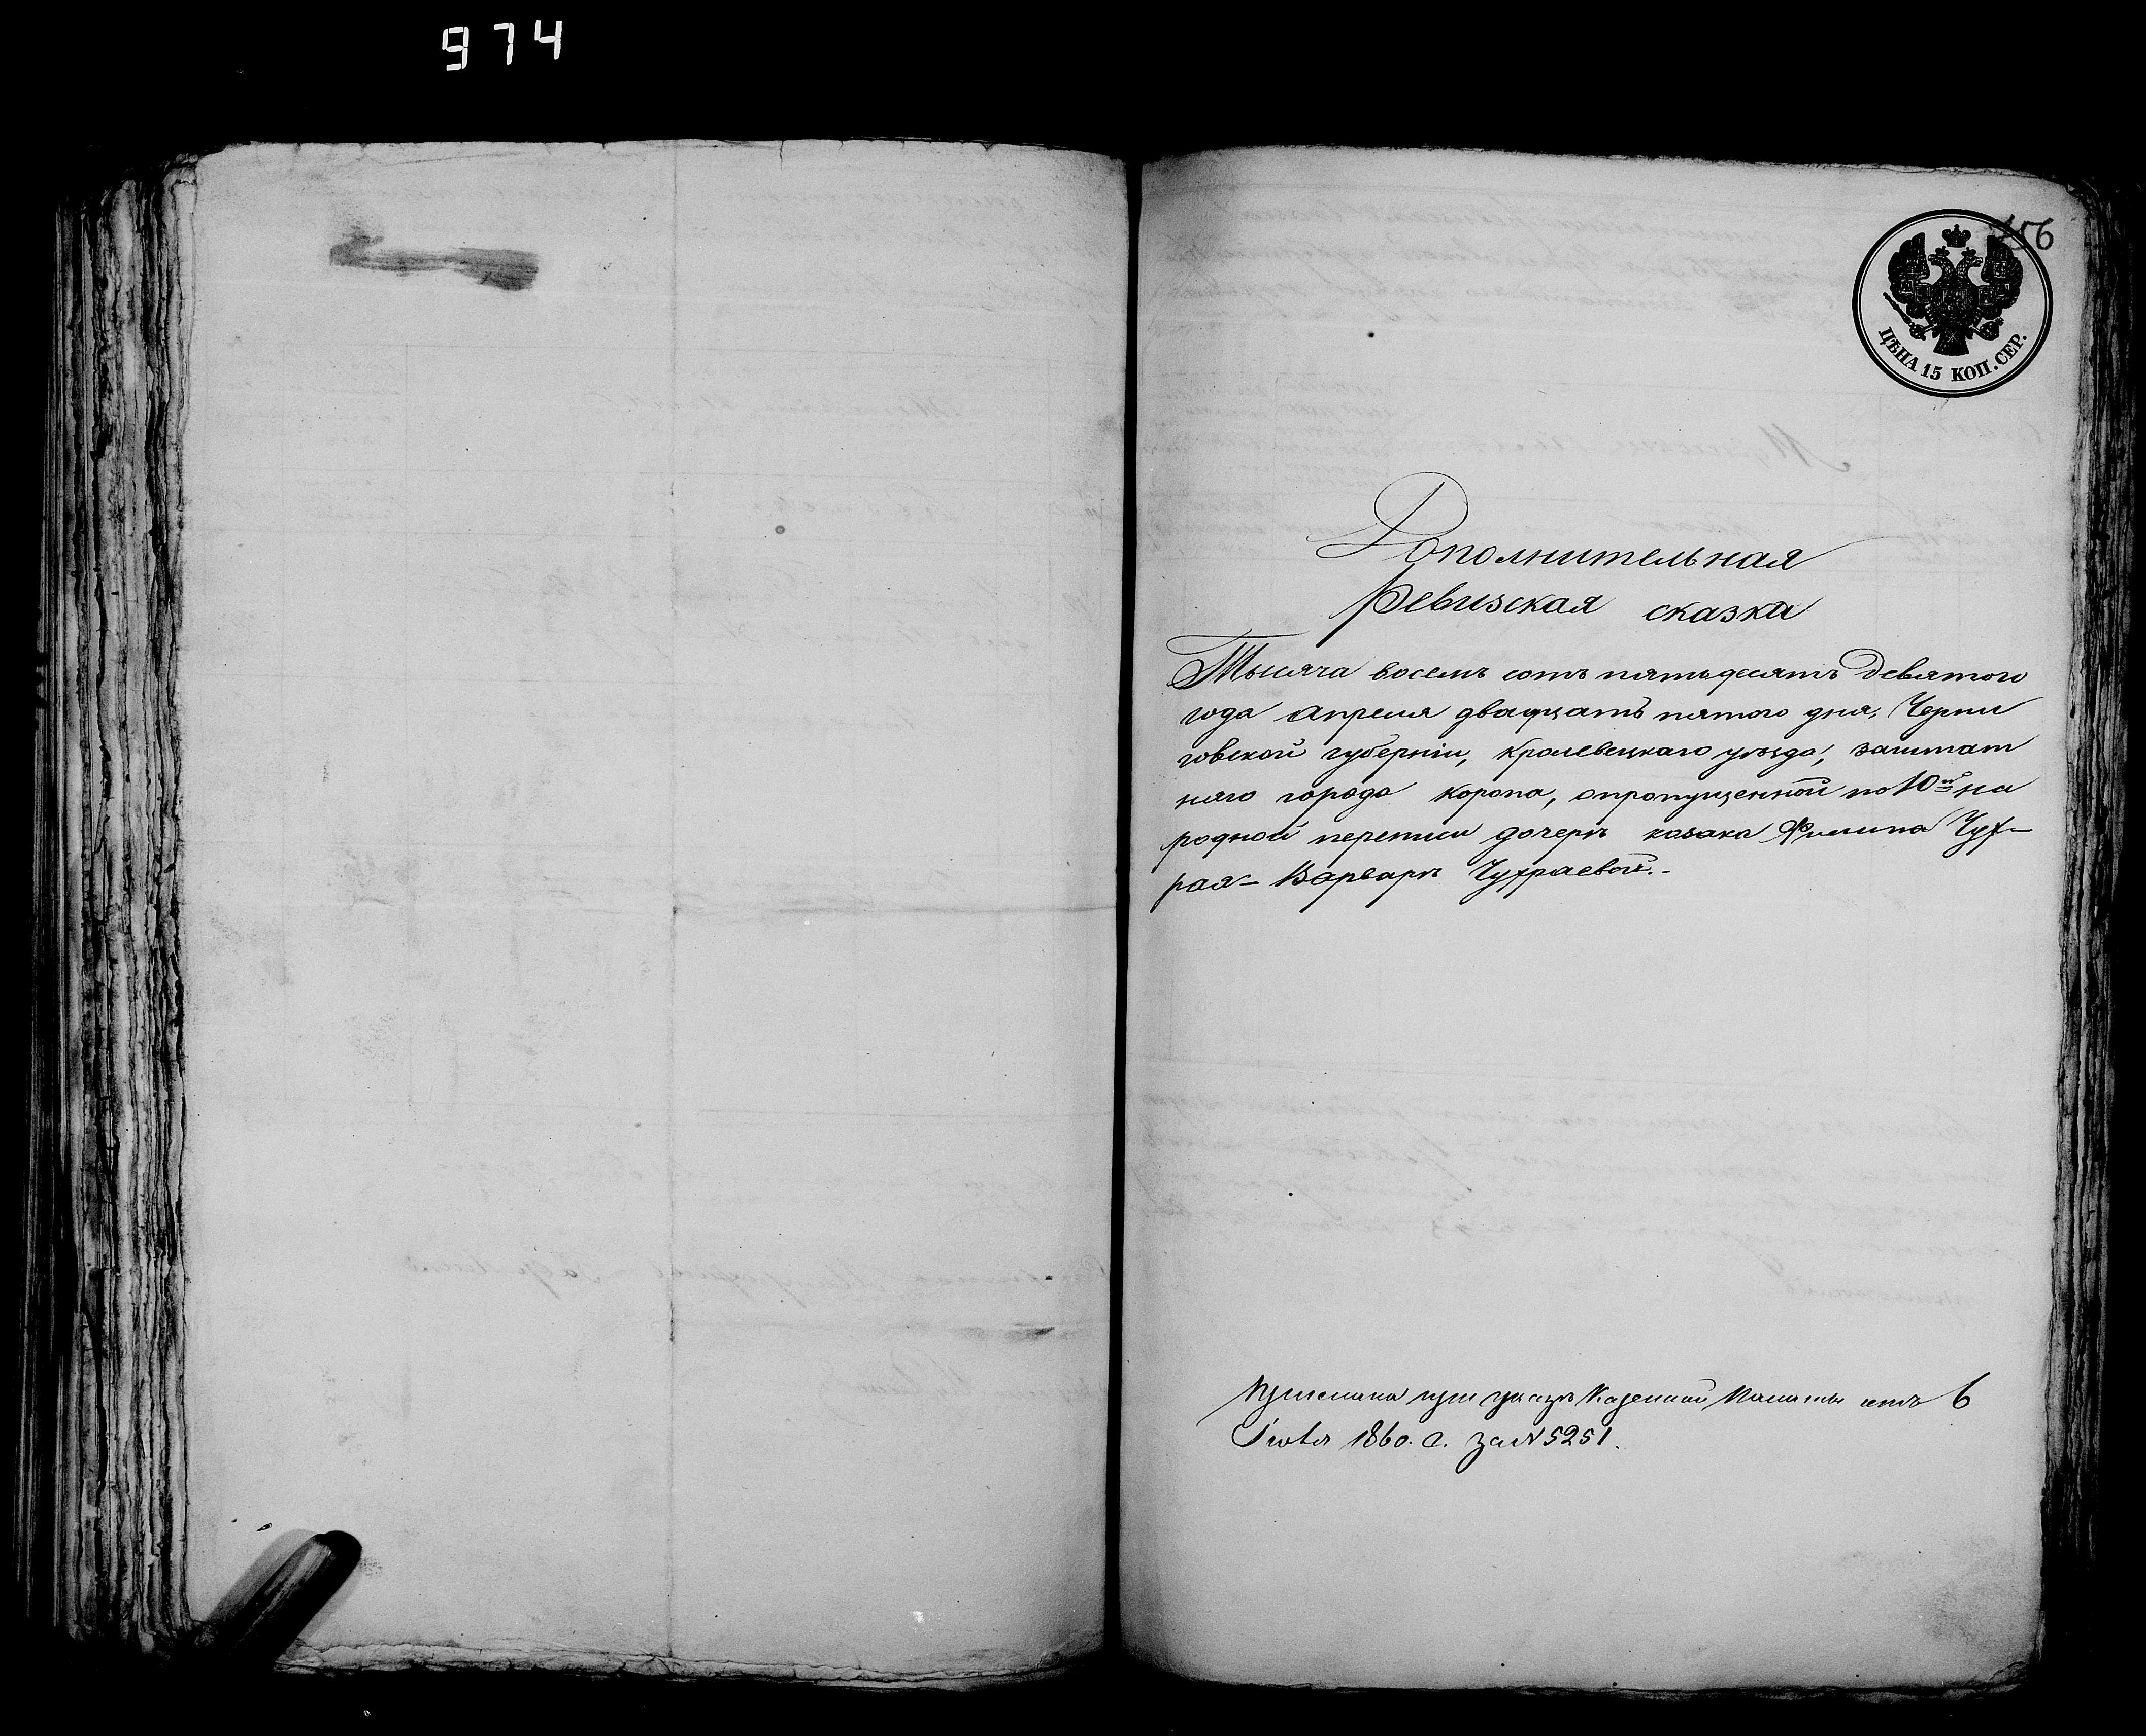 974
156
ЦѢНА 15 КОП. СЕР.
Дополнительная
Ревизская сказка
Тысяча восемь сотъ пятьдесятъ девятого
года апреля двадцать пятого дня, Черни
говской губерніи, Кролевецкаго уѣзда, заштат
наго города Коропа, опропущенной по 10й на
родной переписи дочерѣ козака Филипа Чух-
рая - Варварѣ Чухраевой.-
при указѣ Казенной Палаты отъ 6
1860. г. за № 5251.